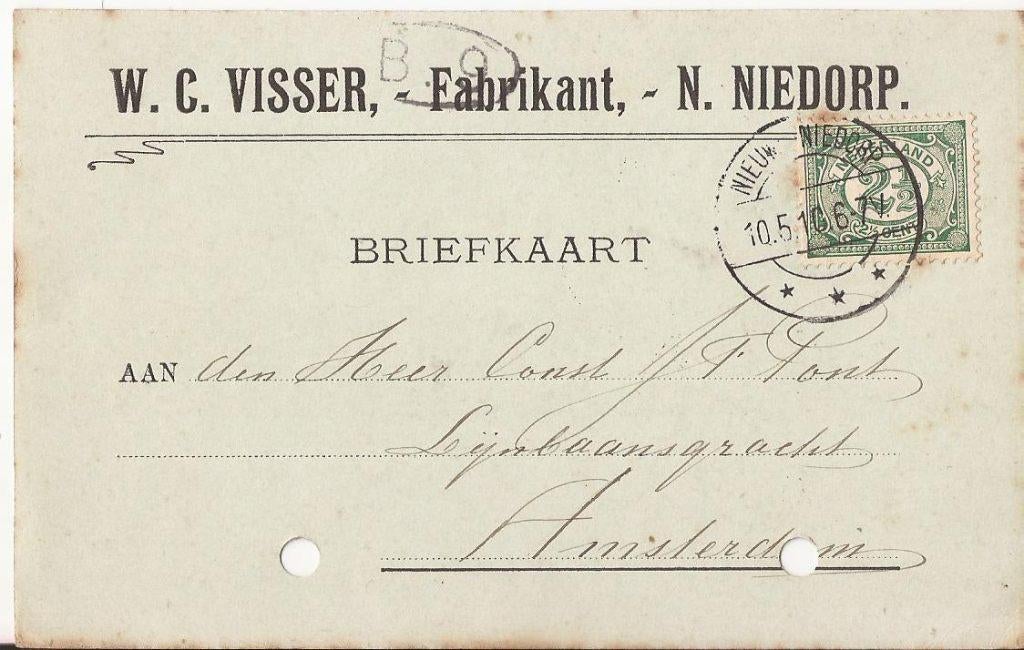 B. 9
W. C. VISSER, - Fabrikant, - N. NIEDORP.
NIEUWE NIEDORP
10.5.10.6-7V.
NEDERLAND
2½
2½ CENT
BRIEFKAART
AAN den Heer Const F Pont
Lijnbaansgracht
Amsterdam